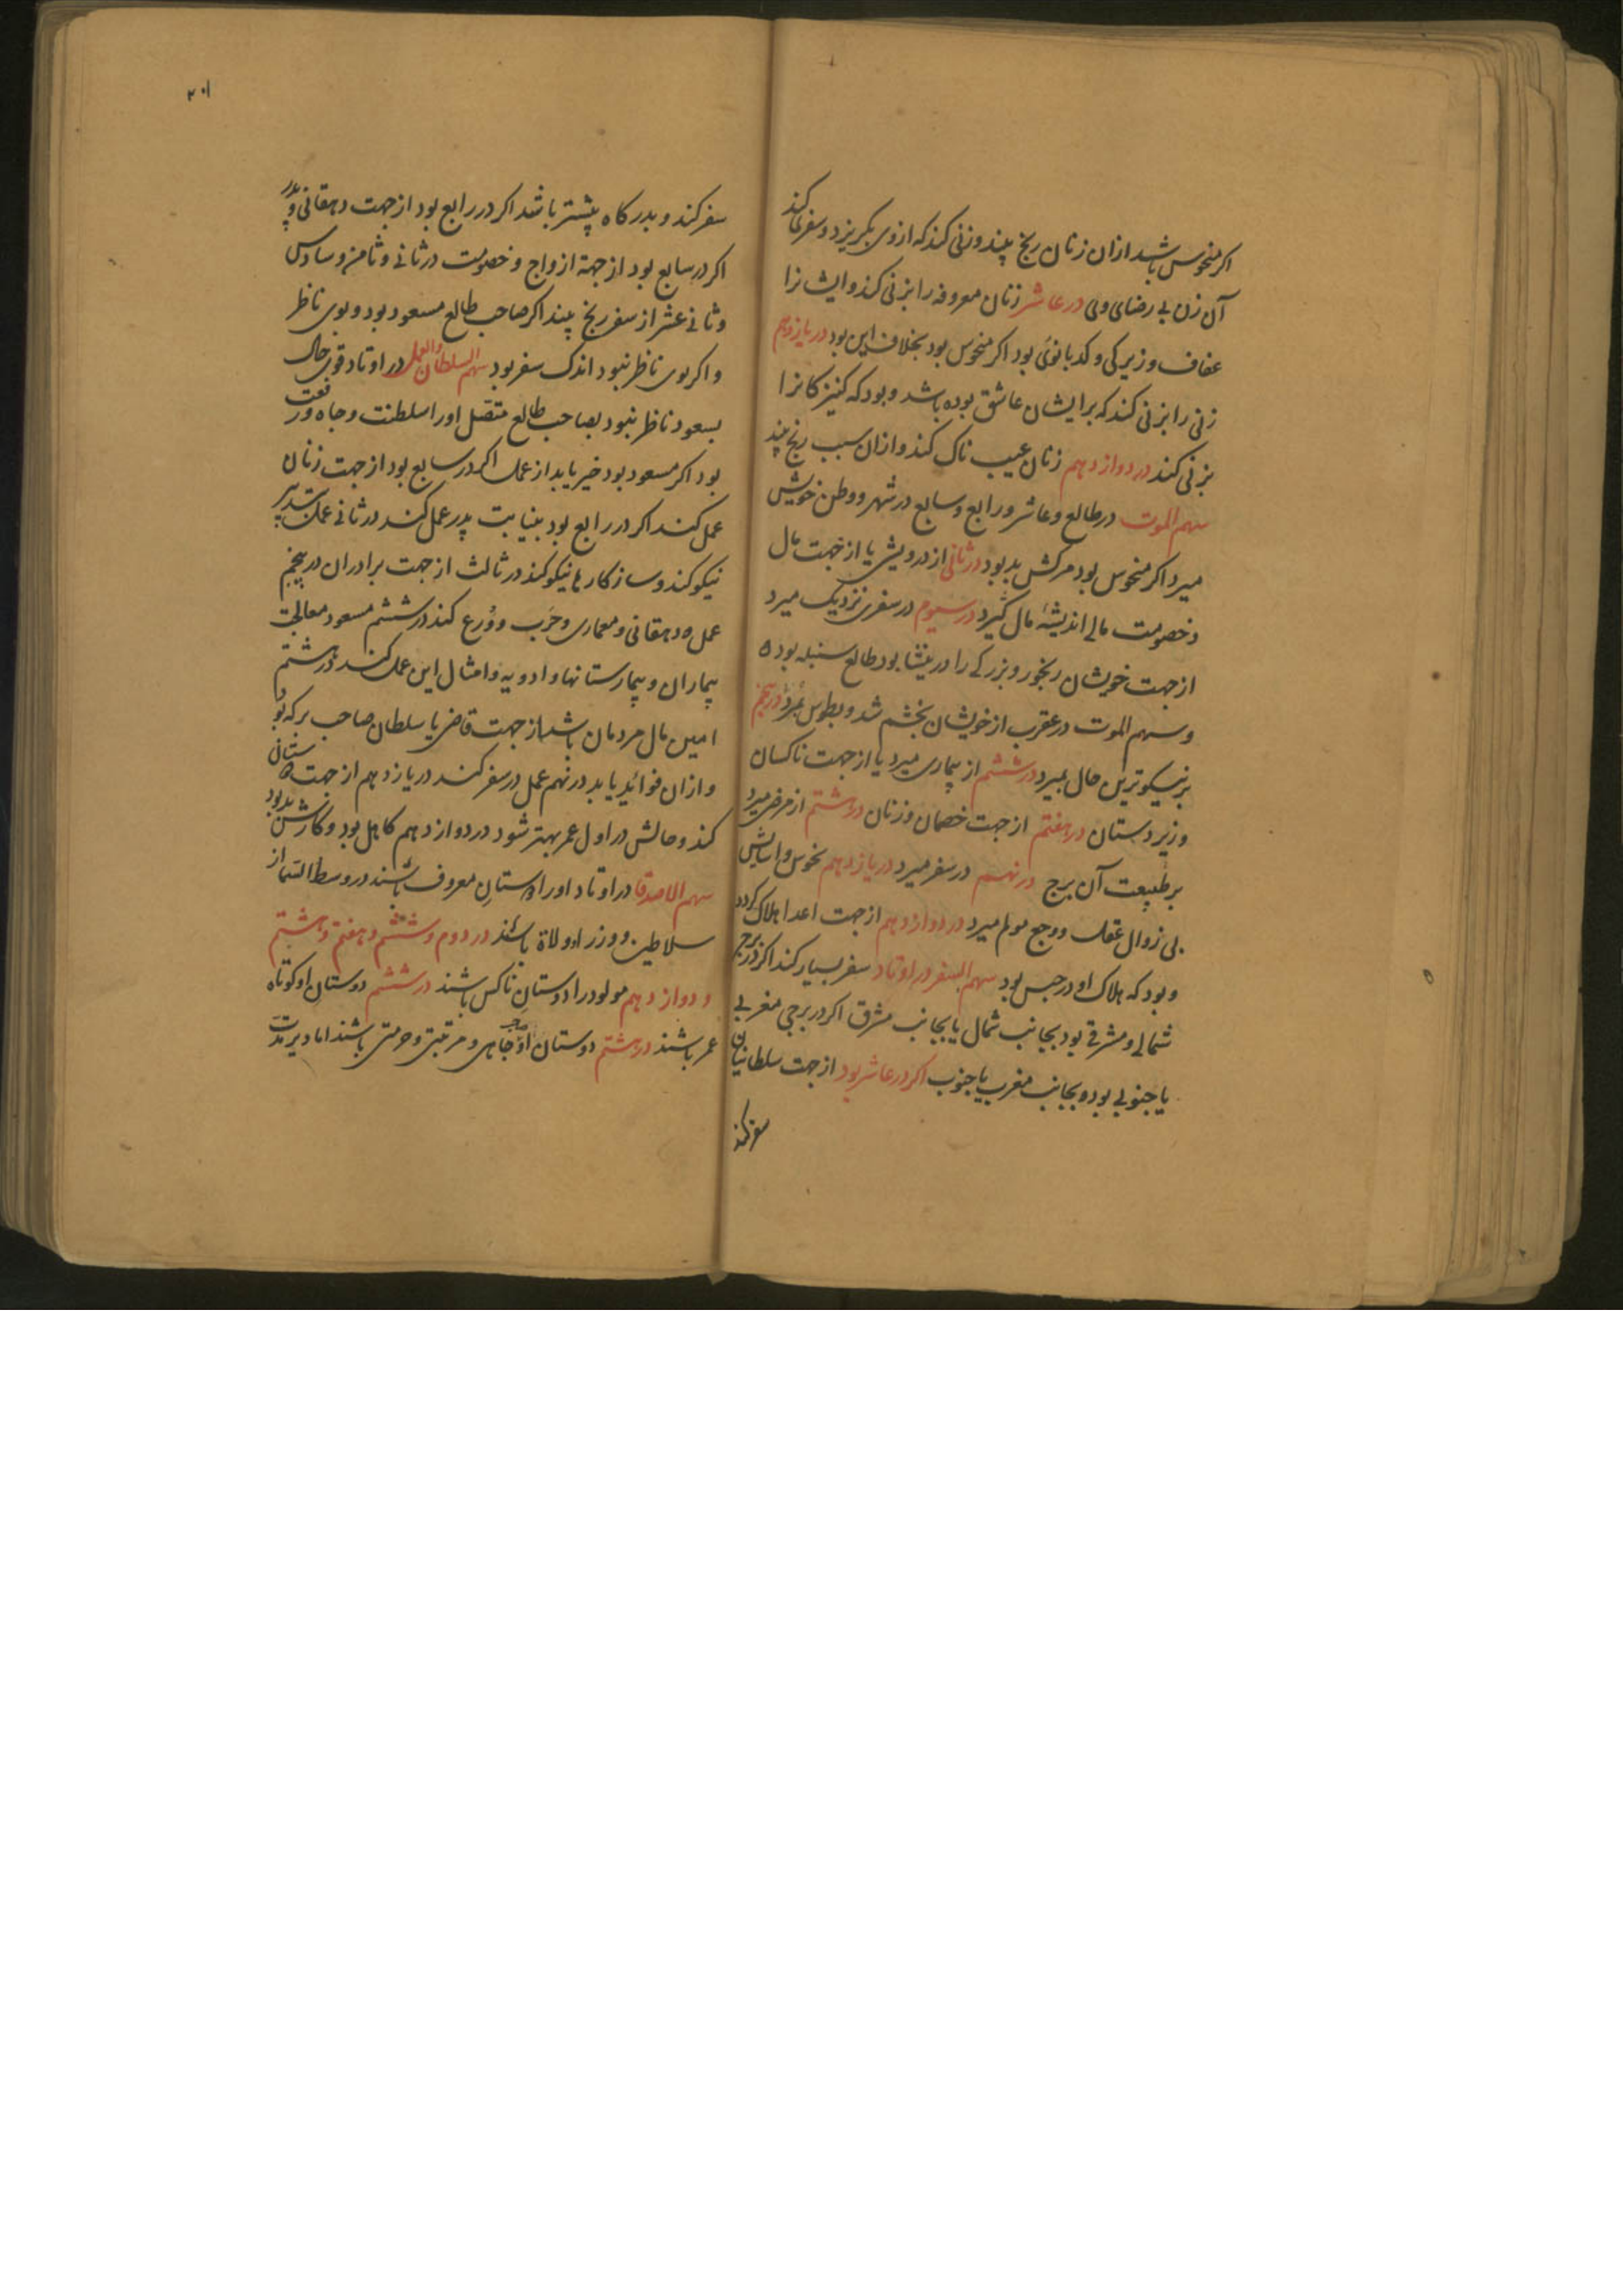 اکر منحوس باشد ازان زنان رنج بیند وزنی کند که ازوی بکریزد و سفر کند
آن زن بی رضای وی در عاشر زنان معروفه را بزنی کند و ایشانرا
عفاف و زیرکی و کدبانوئی بود اکر منحوس بود بخلاف این بود در یازدهم
زنی را بزنی کند که بر ایشان عاشق بوده باشد و بود که کنیزکانرا
بزنی کند در دوازدهم زنان عیب ناک کند و ازان سبب رنج بیند
سهم الموت در طالع و عاشر و رابع و سابع در شهر و وطن خویش
میرد اکر منحوس بود مرکش بد بود در ثانی از درویشی یا از جهت مال
و خصومت مالی اندیشهٔ مال کیرد در سیوم در سفری نزدیک میرد
از جهت خویشان رنجور و بزرکی را در بود طالع سنبله بوده
و سهم الموت در عقرب از خویشان بخشم شد و بمرد در پنجم
بر نیکوترین حال بمیرد در ششم از بیماری میرد یا از جهت ناکسان
و زیردستان در هفتم از جهت خصمان و زنان در هشتم از مرض میرد
بر طبیعت آن برج در نهم در سفر میرد در یازدهم بخوشی و اسایش
بی زوال عقل و وجع مولم میرد در دوازدهم از جهت اعدا هلاک کردد
و بود که هلاک او در حبس بود سهم السفر در اوتاد سفر بسیار کند اکر در برج
شمالی و مشرقی بود بجانب شمال یا بجانب مشرق اکر در برجی مغربی
یا جنوبی بود و بجانب مغرب یا جنوب اکر در عاشر بود از جهت سلطانیان
سفر کند
۲۰۱
سفر کند و بدرکاه بیشتر باشد اکر در رابع بود از جهت دهقانی و پدر
اکر در سابع بود از جهة ازواج و خصومت در ثانی و ثامن و سادس
و ثانی عشر از سفر رنج بیند اکر صاحب طالع مسعود بود و بوی ناظر
و اکر بوی ناظر نبود اندک سفر بود سهم السلطان و العمل در اوتاد قوی حال
بسعود ناظر نبود بصاحب طالع متصل اورا سلطنت و جاه و رفعت
بود اکر مسعود بود خیر یابد از عمل اکر در سابع بود از جهت زنان
عمل کند اکر در رابع بود بنیابت پدر عمل کند در ثانی عمل بتدبیر
نیکو کند و ساز کارها نیکو کند در ثالث از جهت برادران در پنجم
عمل دهقانی و معماری و حرب و ورع کند در ششم مسعود معالجت
بیماران و بیمارستانها و ادویه و امثال این عمل کند در هشتم
امین مال مردمان باشد از جهت قاضی یا سلطان صاحب برکه بود
و ازان فوائد یابد در نهم عمل در سفر کند در یازدهم از جهت دوستانی
کند و حالش در اول عمر بهتر شود در دوازدهم کاهل بود و کارش بد بود
سهم الاصدقا در اوتاد اورا دوستان معروف باشند در وسط السّما از
سلاطین و وزرا و ولاة باشند در دوم و ششم و هفتم و هشتم
و دوازدهم مولود را دوستان ناکس باشند در ششم دوستان او کوتاه
عمر باشند در هشتم دوستان او صاحب جاهی و مرتبتی و حرمتی باشند اما دیر مدت